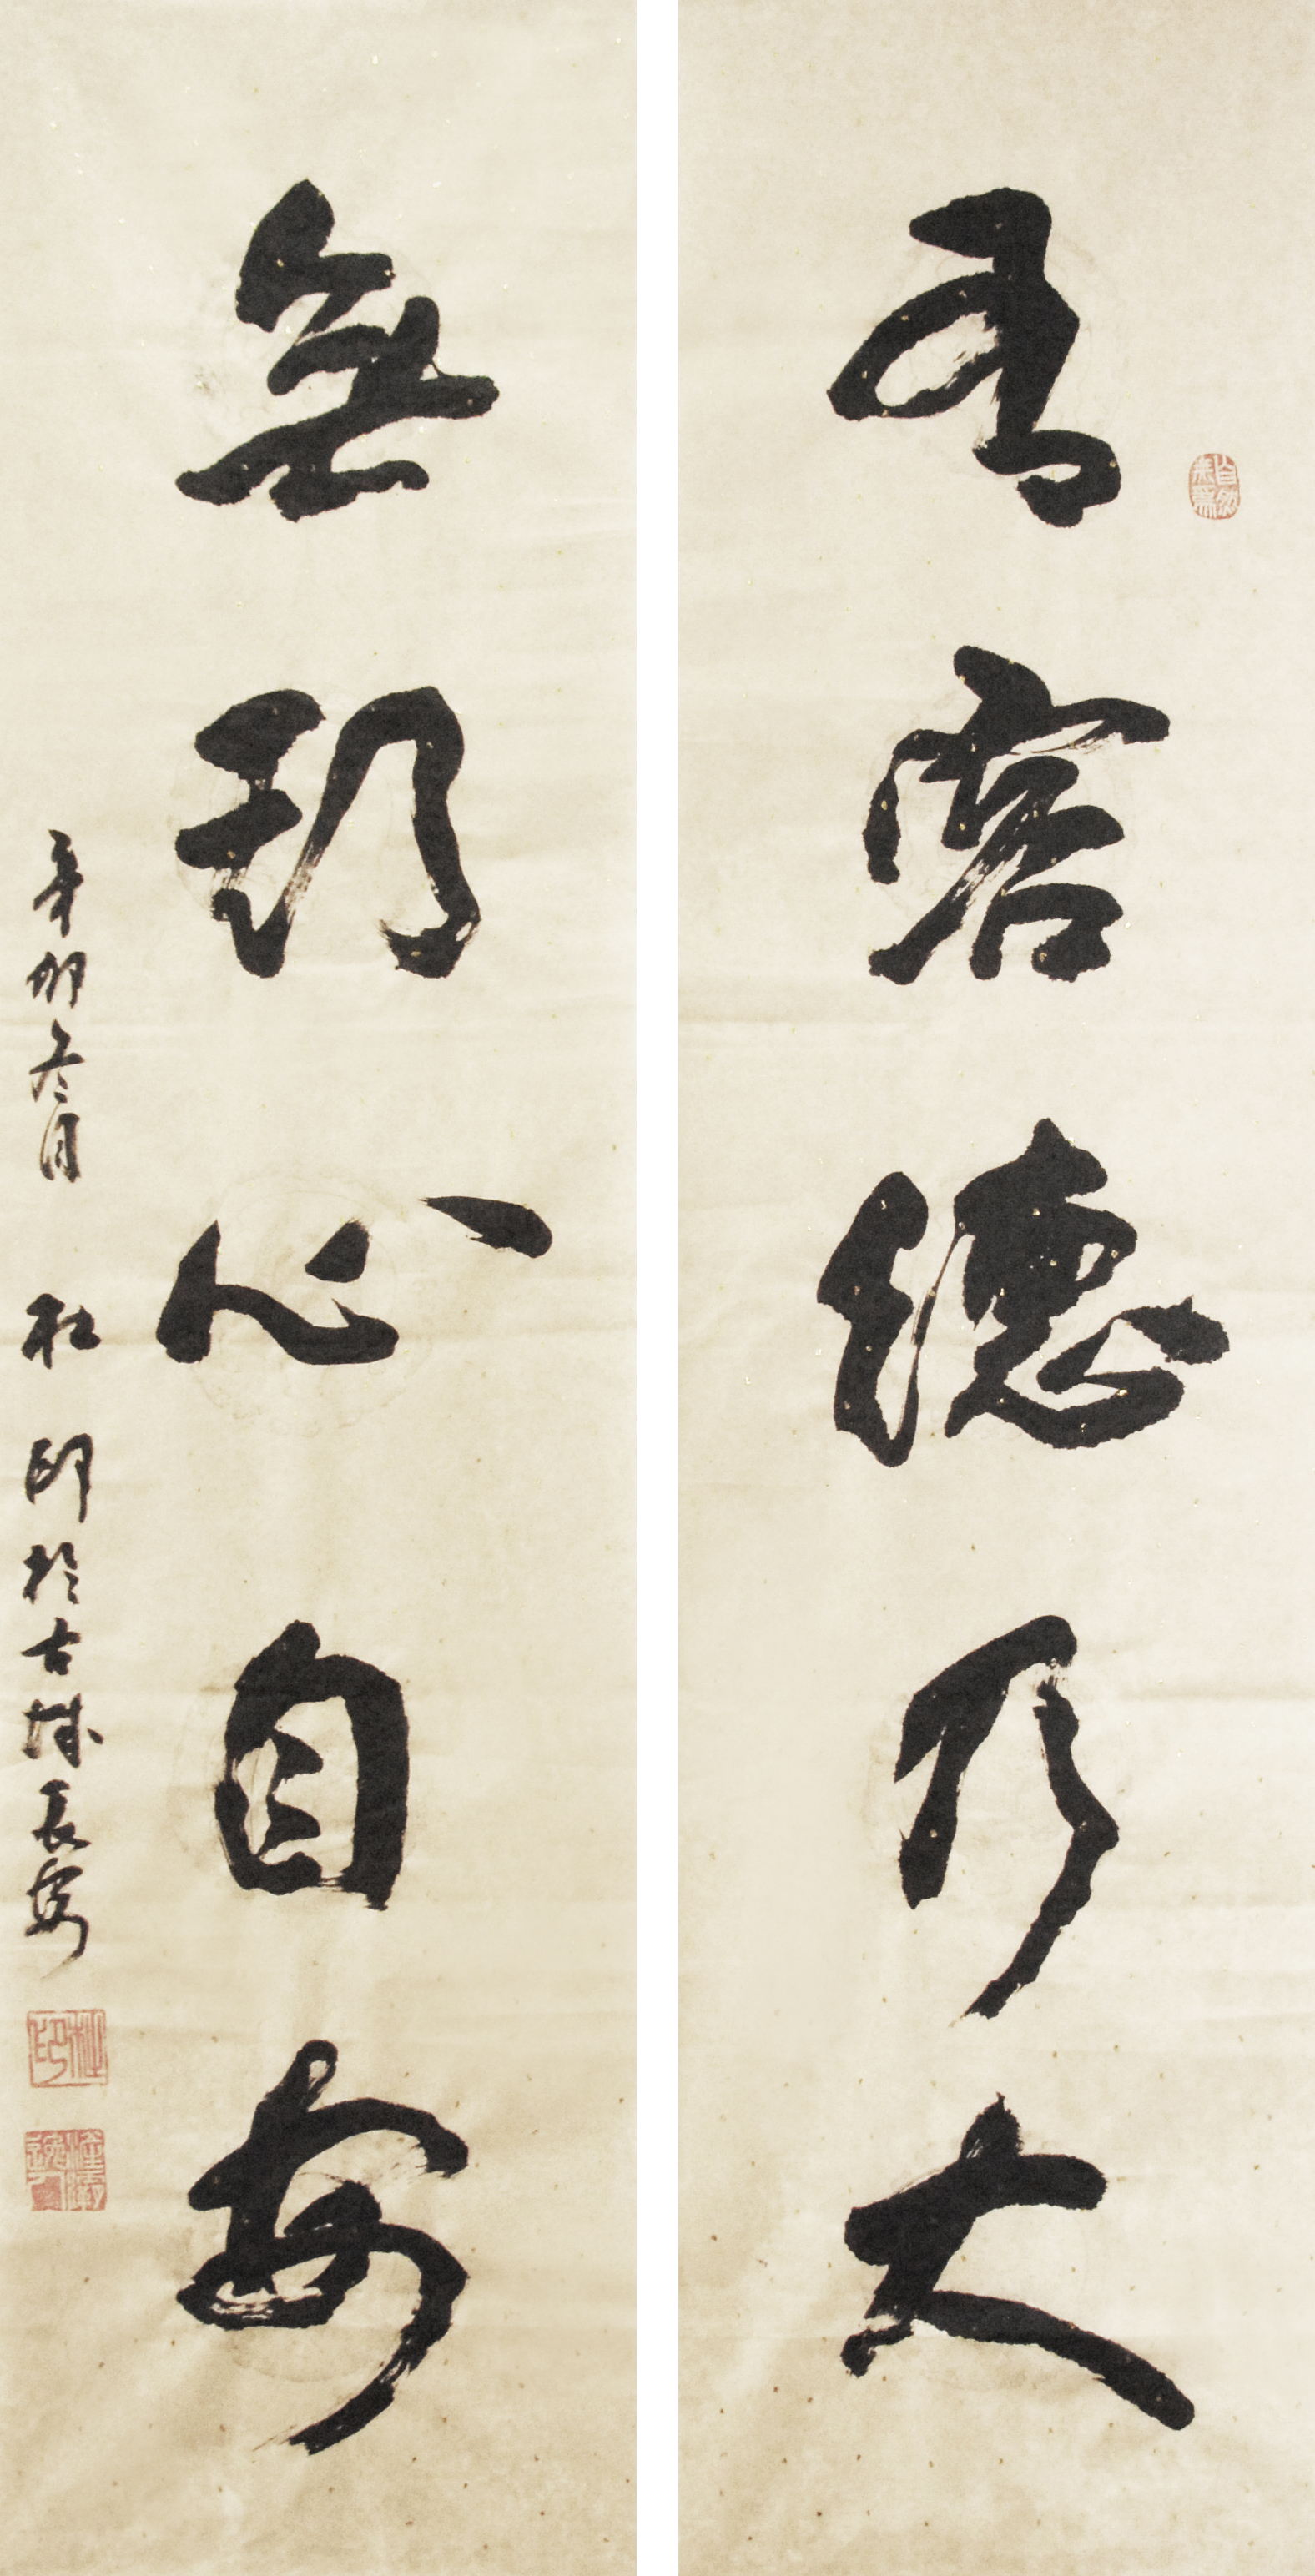 有容德乃大
無期心自安
辛卯冬月 杜印於古城長安
杜印